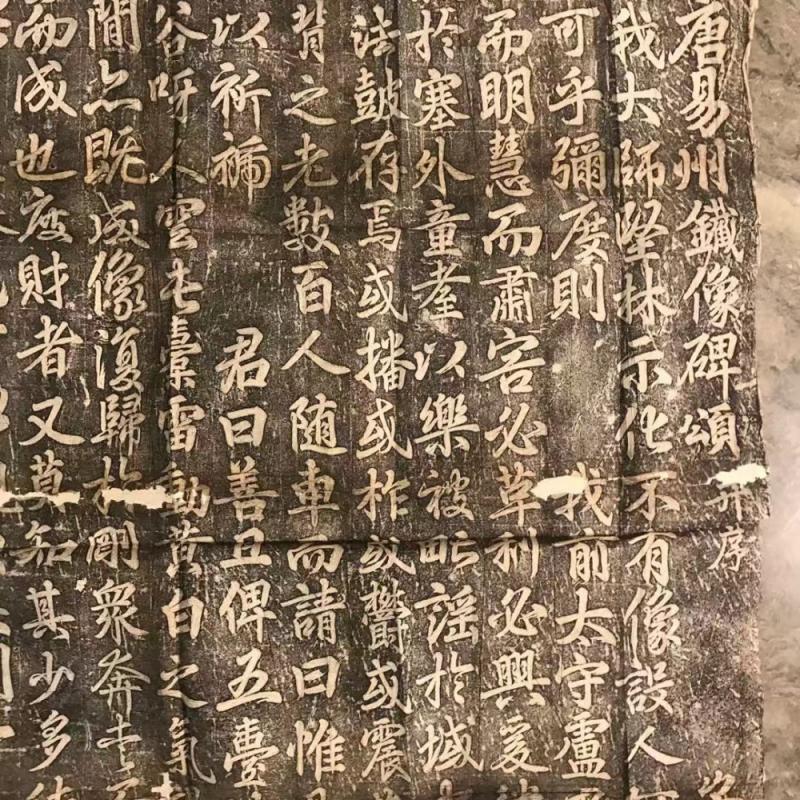 唐易州鐵像碑頌 并序
我大師堅林示化不有像設人
可乎彌度則 我前太守盧
而明慧而肅害必草利必興爰
於塞外童耋以樂被叱謠於城
法鼓存焉或播或柞或鬱或震
背之老數百人随車而請曰惟
以祈禰 君曰善且俾五
谷呀人雲屯橐雷動黄白之氣
閒念既成像復歸於剛衆奔走
而成也度財者又莫知其少多